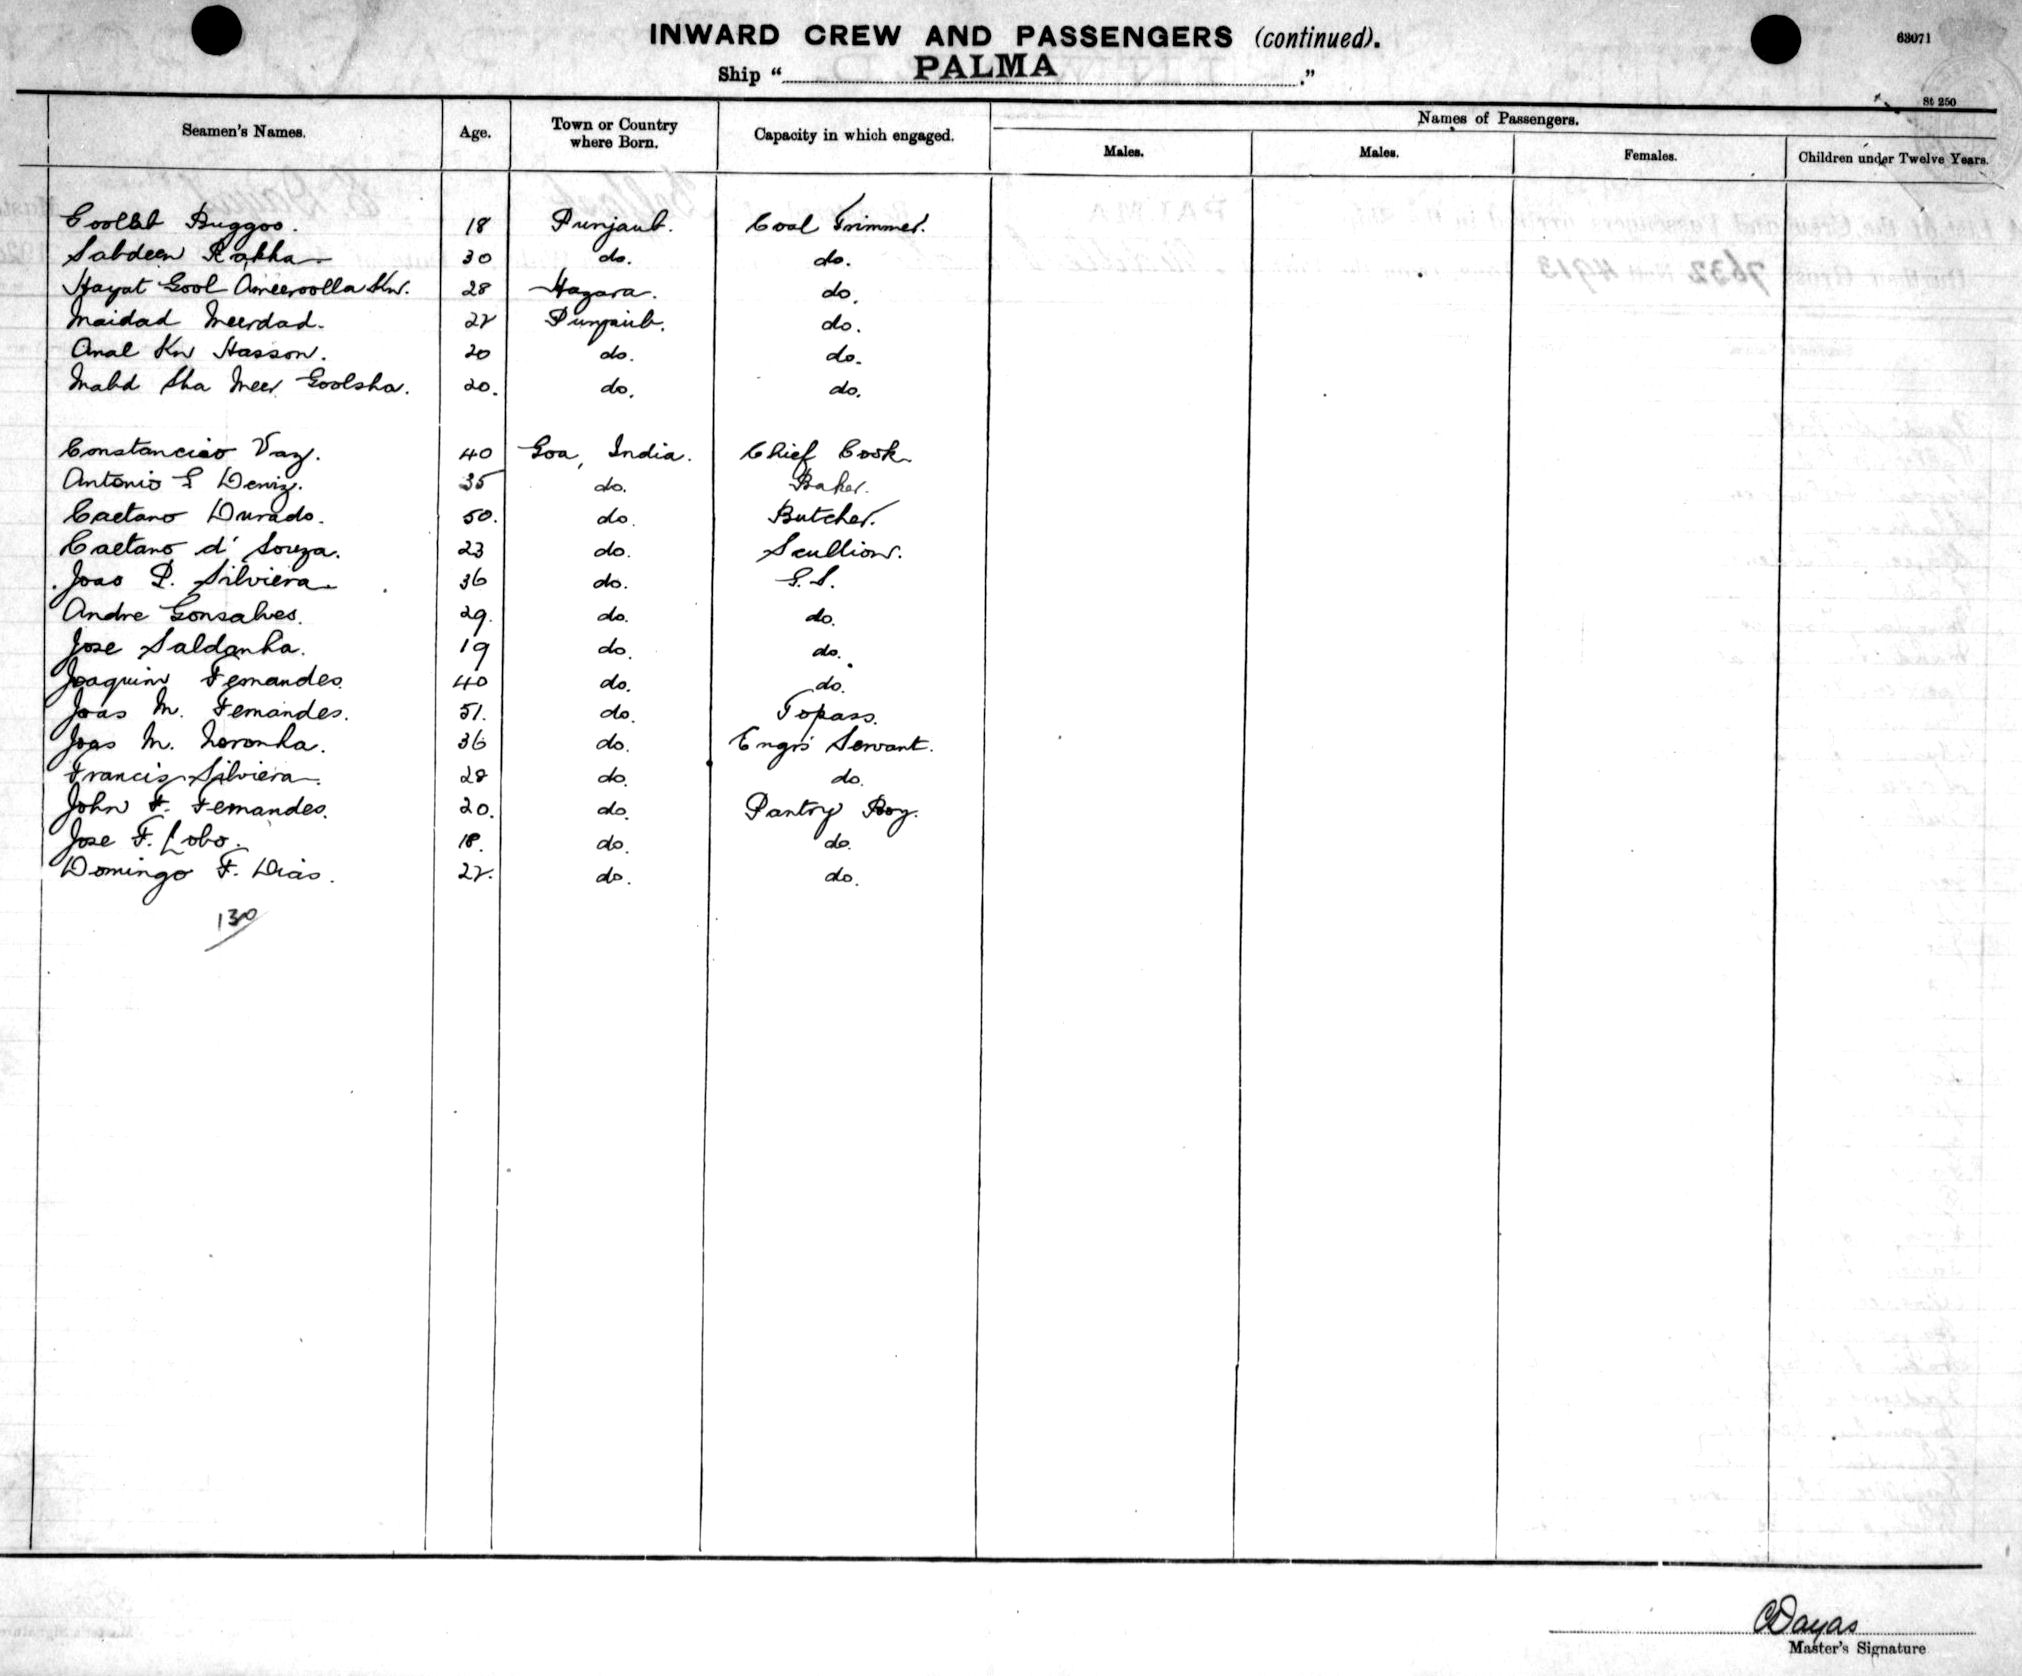 INWARD CREW AND PASSENGERS (continued).
63071
Ship "PALMA."
St 250
Seamen's Names. Age. Town or Country where Born. Capacity in which engaged. Names of Passengers.
Males. Males. Females. Children under Twelve Years.
Goolab Buggoo. 18 Punjaub. Coal Trimmer.
Sabdeen Rakha 30 do. do.
Hayat Gool Ameeroolla Kn. 28 Hazara. do.
Maidad Meerdad. 22 Punjaub. do.
Anal Kn Hasson. 20 do. do.
Mahd Sha Meer Goolsha. 20. do. do.
Constancio Vaz. 40 Goa, India. Chief Cook.
Antonio S Deniz. 35 do. Baker.
Caetano Durado. 50. do. Butcher.
Caetano d' Souza. 23 do. Scullion.
Joao P. Silviera. 36 do. G.S.
Andre Gonsalves. 29. do. do.
Jose Saldanha. 19 do. do.
Joaquim Fernandes. 40 do. do.
Joao M. Fernandes. 51. do. Topass.
Joao M. Noronha. 36 do. Engrs Servant.
Francis Silviera. 28 do. do.
John F. Fernandes. 20. do. Pantry Boy.
Jose F. Lobo. 18. do. do.
Domingo F. Dias. 22. do. do.
130
Master's Signature